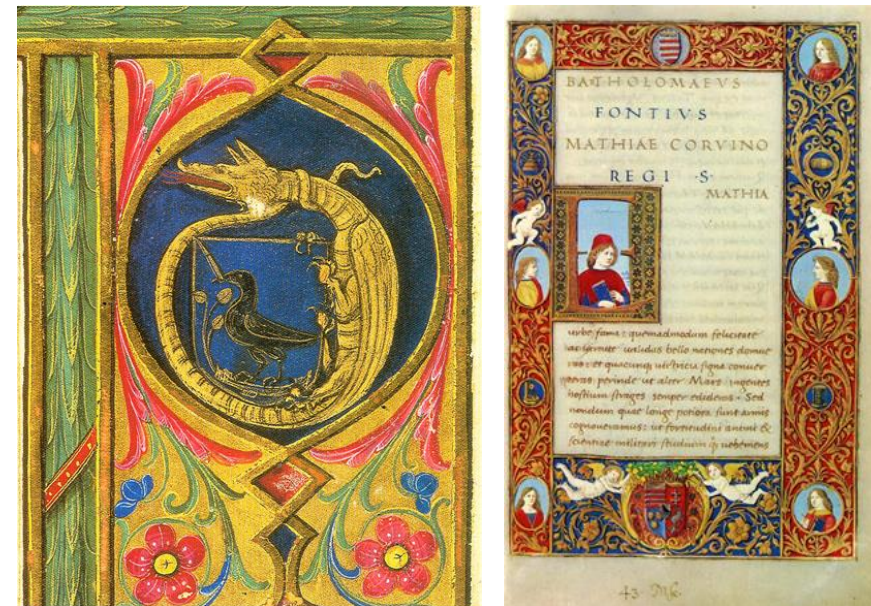 BARTHOLOMAEVS
FONTIVS
MATHIAE CORVINO
REGI ·S·
MATHIA
urbe fama: quemadmodum felicitate
ac semper ualidas bello nationes domue
ris: et quacunq uictricia signa conuer
teris: perinde ut alter Mars ingentes
hostium strages semper edideris. Sed
nondum quae longe potiora sunt armis
cognoueramus: ut fortitudini animi &
scientiae militaris studium q uehemens
43.